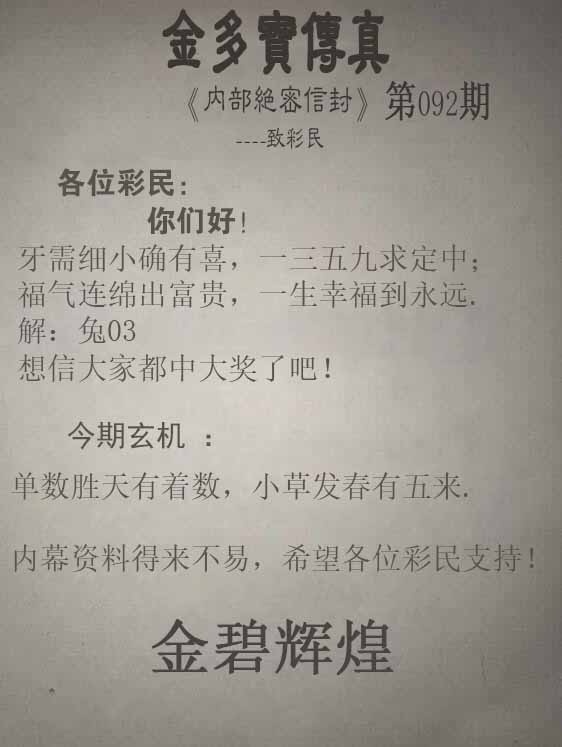 金多寶傳真
《内部絕密信封》第092期
----致彩民
各位彩民:
你们好!
牙需细小确有喜，一三五九求定中;
福气连绵出富贵，一生幸福到永远.
解：兔03
想信大家都中大奖了吧!
今期玄机 ：
单数胜天有着数，小草发春有五来.
内幕资料得来不易，希望各位彩民支持!
金碧辉煌